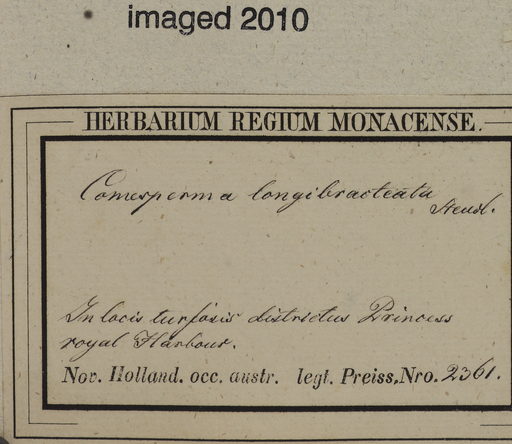 imaged 2010
HERBARIUM REGIUM MONACENSE.
Comesperma longibracteata
Steud.
In locis turfosis districtus Princess
royal Harbour.
Nov. Holland. occ. austr. legt. Preiss, Nro. 2361.